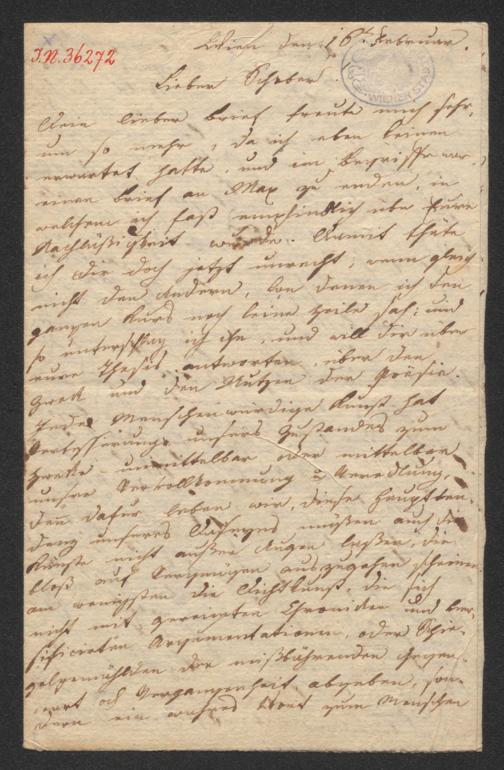 J.N. 36272
Wien den 16t Februar.
Lieber Schober
Dein lieber Brief freute mich sehr,
um so mehr, da ich eben keinen
erwartet hatte, und im Begriffe war
einen Brief an Max zu enden, in
welchem ich fast empfindlich über Eure
Nachläßigkeit wurde. Damit thäte
ich dir doch jetzt unrecht, wenn gleich
nicht den Andern, von denen ich den
ganzen Kurs noch keine Zeile sah; und
so unterschlag ich ihn, und will dir über
eure Thesis antworten, über den
Zweck und den Nutzen der Poësie.
Jede Menschenwürdige Kunst hat
Verbesserung unsers Zustandes zum
Zwecke unmittelbar oder mittelbar
unsre Vervollkommnung u Veredlung,
den dafür leben wir, diese Haupttendenz
unsers Daseyns müßen auch die
Künste nicht außer Augen laßen, die
bloß auf Vergnügen auszugehen scheinen
am wenigsten die Dichtkunst, die sich
nicht mit gereimten Chroniken und versificirten
Argumentationen, oder
der Gegenwart
od Vergangenheit abgeben, sondern
ein wahres Wort zum Menschen